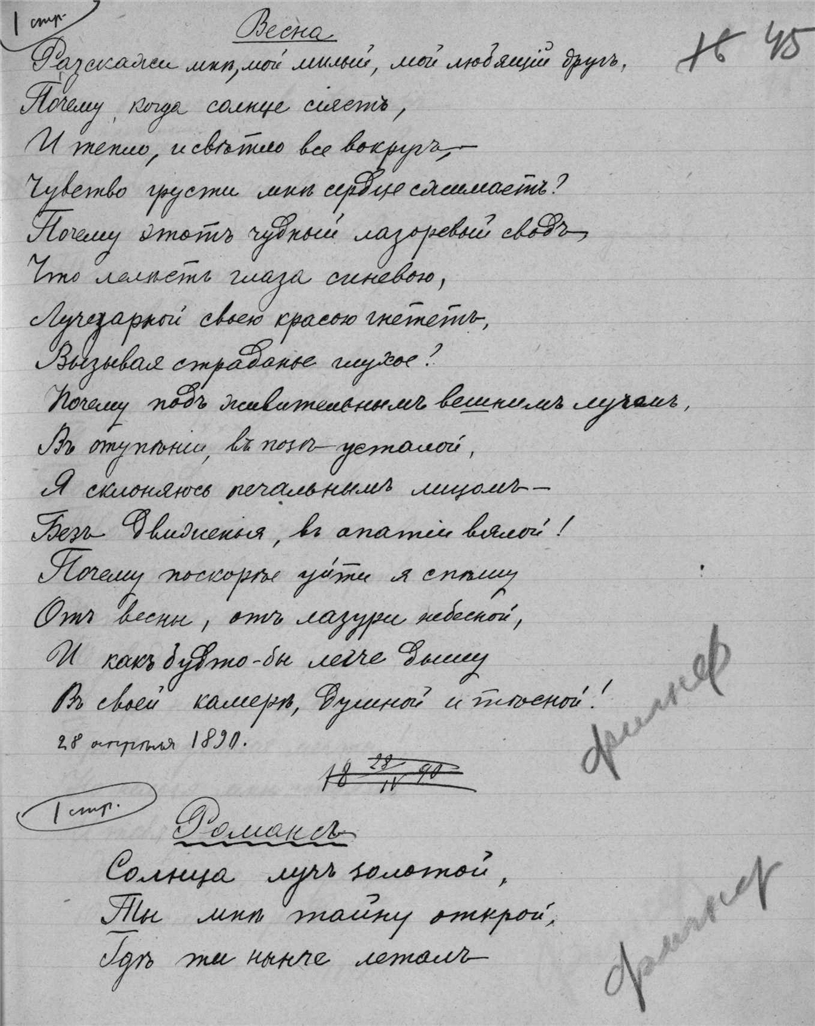 1 стр.
Весна
45
Разскажи мнѣ, мой милый, мой любящій другъ,
Почему, когда солнце сіяетъ,
И тепло, и свѣтло все вокругъ,—
Чувство грусти мнѣ сердце сжимаетъ?
Почему этотъ чудный лазоревый сводъ,
Что лелѣетъ глаза синевою,
Лучезарной своею красою гнететъ,
Вызывая страданье глухое?
Почему подъ живительнымъ вешнимъ лучемъ,
Въ отупѣніи, въ позѣ усталой,
Я склоняюсь печальнымъ лицомъ—
Безъ движенья, въ апатіи вялой!
Почему поскорѣе уйти я спѣшу
Отъ весны, отъ лазури небесной,
И какъ будто-бы легче дышу
Въ своей камерѣ, душной и тѣсной!
28 апрѣля 1890.
18 28/IV 90
Фигнер
1 стр.
Романсъ
Солнца лучъ золотой,
Ты мнѣ тайну открой,
Гдѣ ты нынче леталъ
Фигнер